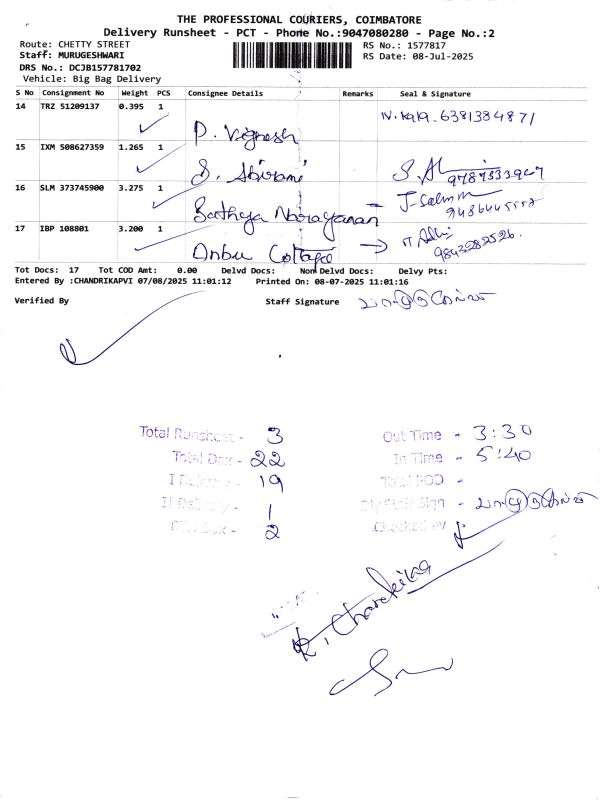 THE PROFESSIONAL COURIERS, COIMBATORE
Delivery Runsheet - PCT - Phone No.:9047080280 - Page No.:2
Route: CHETTY STREET RS No.: 1577817
Staff: MURUGESHWARI RS Date: 08-Jul-2025
DRS No.: DCJB157781702
Vehicle: Big Bag Delivery
S No Consignment No Weight PCS Consignee Details Remarks Seal & Signature
14 TRZ 51209137 0.395 1 P. Vignesh N. Kala. 6381384871
15 IXM 508627359 1.265 1 S. Abirami
16 SLM 373745900 3.275 1 Sathya Narayanan J. Salman
17 IBP 108801 3.200 1 Anbu Cottage
Tot Docs: 17 Tot COD Amt: 0.00 Delvd Docs: Non Delvd Docs: Delvy Pts:
Entered By :CHANDRIKAPVI 07/08/2025 11:01:12 Printed On: 08-07-2025 11:01:16
Verified By Staff Signature
Total Runsheet - 3 Out Time - 3:30
Total Dox - 22 In Time - 5:40
I Delivery - 19 Total POD -
II Delivery - 1 Dly Staff Sign -
RTN Dox - 2 Checked By